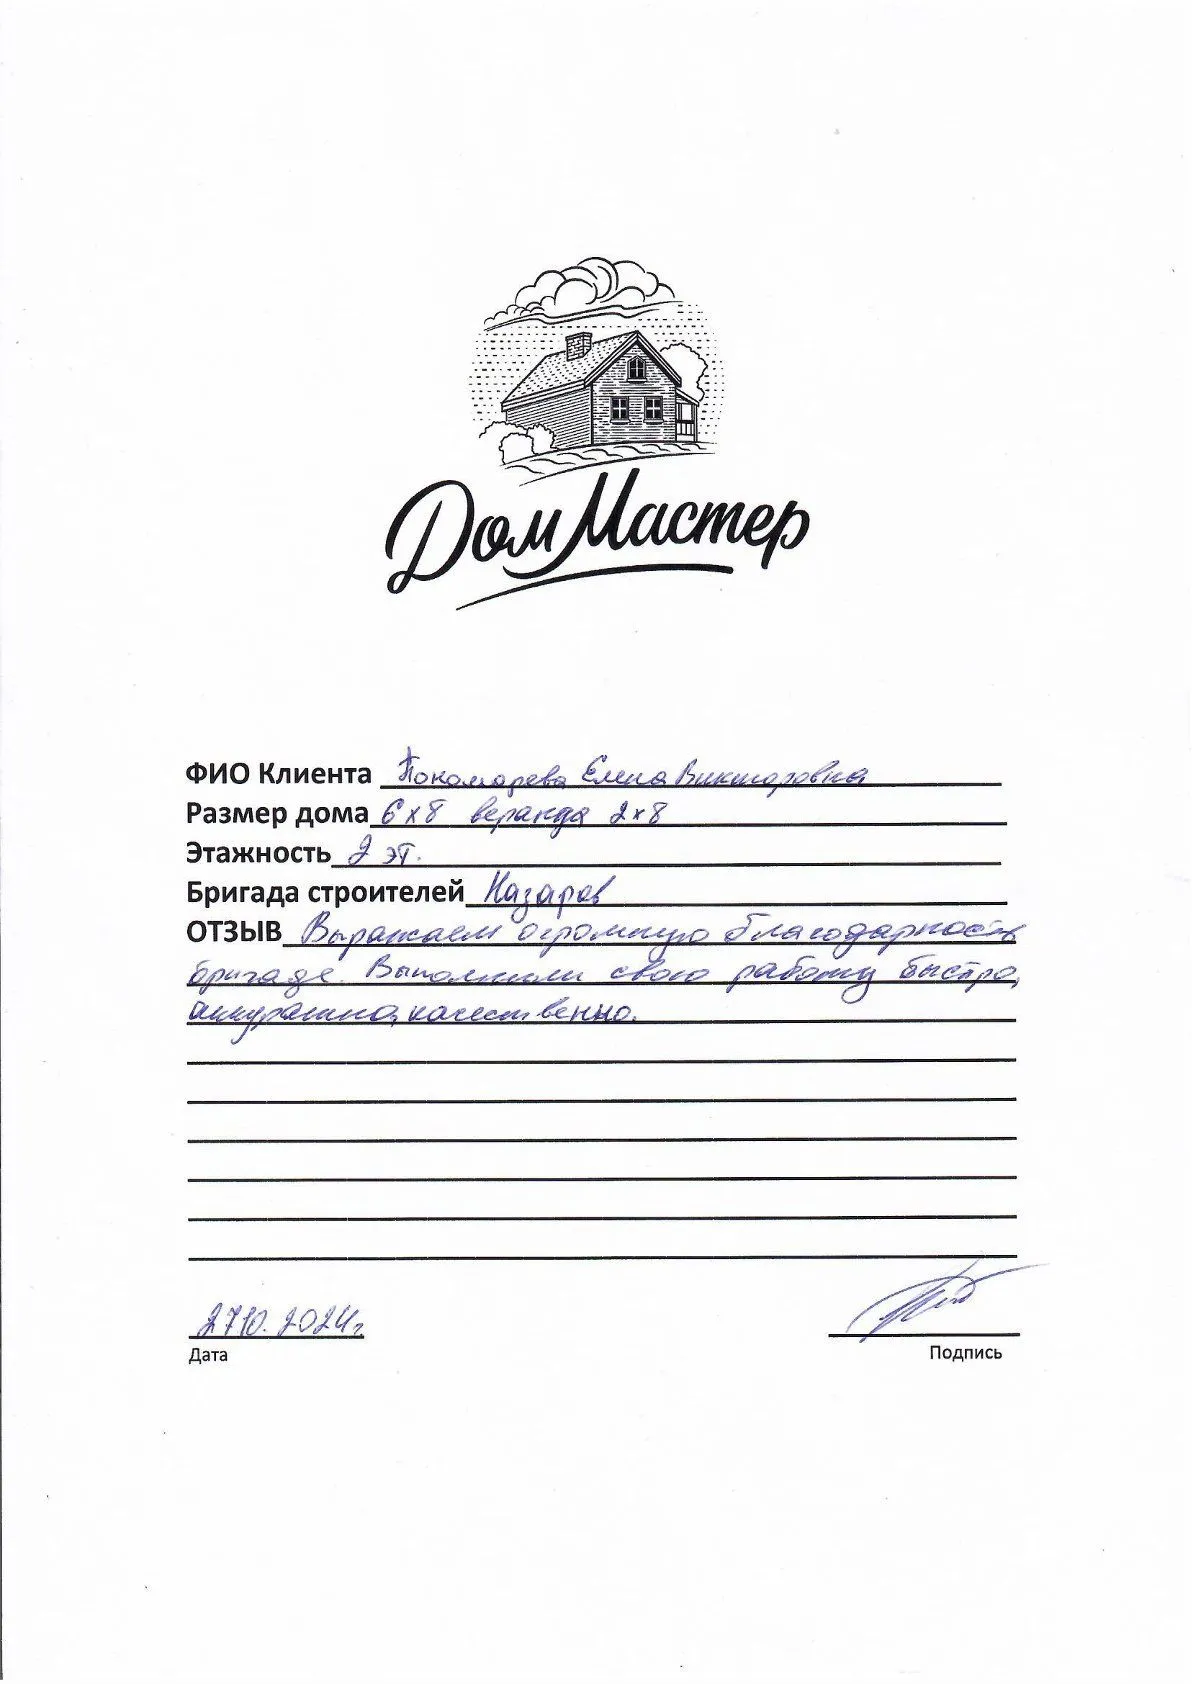 Дом Мастер
ФИО Клиента Пономарева Елена Викторовна
Размер дома 6х8 веранда 2х8
Этажность 2 эт.
Бригада строителей Назаров
ОТЗЫВ Выражаем огромную благодарность
бригаде. Выполнили свою работу быстро,
аккуратно, качественно.
27.10.2024г.
Дата Подпись